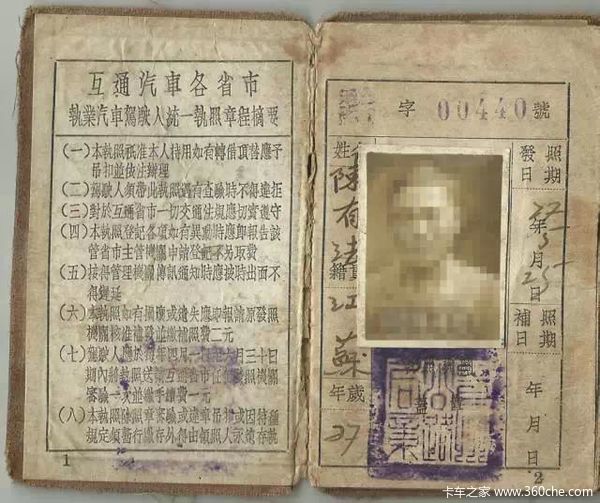 互通汽車各省市
執業汽車駕駛人統一執照章程摘要
(一)本執照祇准本人持用如有轉借頂替應予
吊扣並依法辦理
(二)駕駛人須帶此執照遇有查驗時不得違拒
(三)對於互通省市一切交通法規應切實遵守
(四)本執照登記各項如有異動時應即報告該
管省市主管機關申請登記不另取費
(五)接得管理機關傳訊通知時應按時出面不
得遲延
(六)本執照如有損壞或遺失應即報請原發照
機關核准補發並繳補照費二元
(七)駕駛人應於每年四月一日至六月三十日
期內將執照送請互通省市任何發照機關
審驗一次並繳手續費一元
(八)本執照除照章審驗或違章吊扣或因特種
規定須暫行繳存外得由領照人永遠存執
1
字 00440 號
姓名
陳有
籍貫
江蘇
年歲
27
照發
期日
27年5月25日
照補
期日
年 月 日
2
卡车之家 www.360che.com